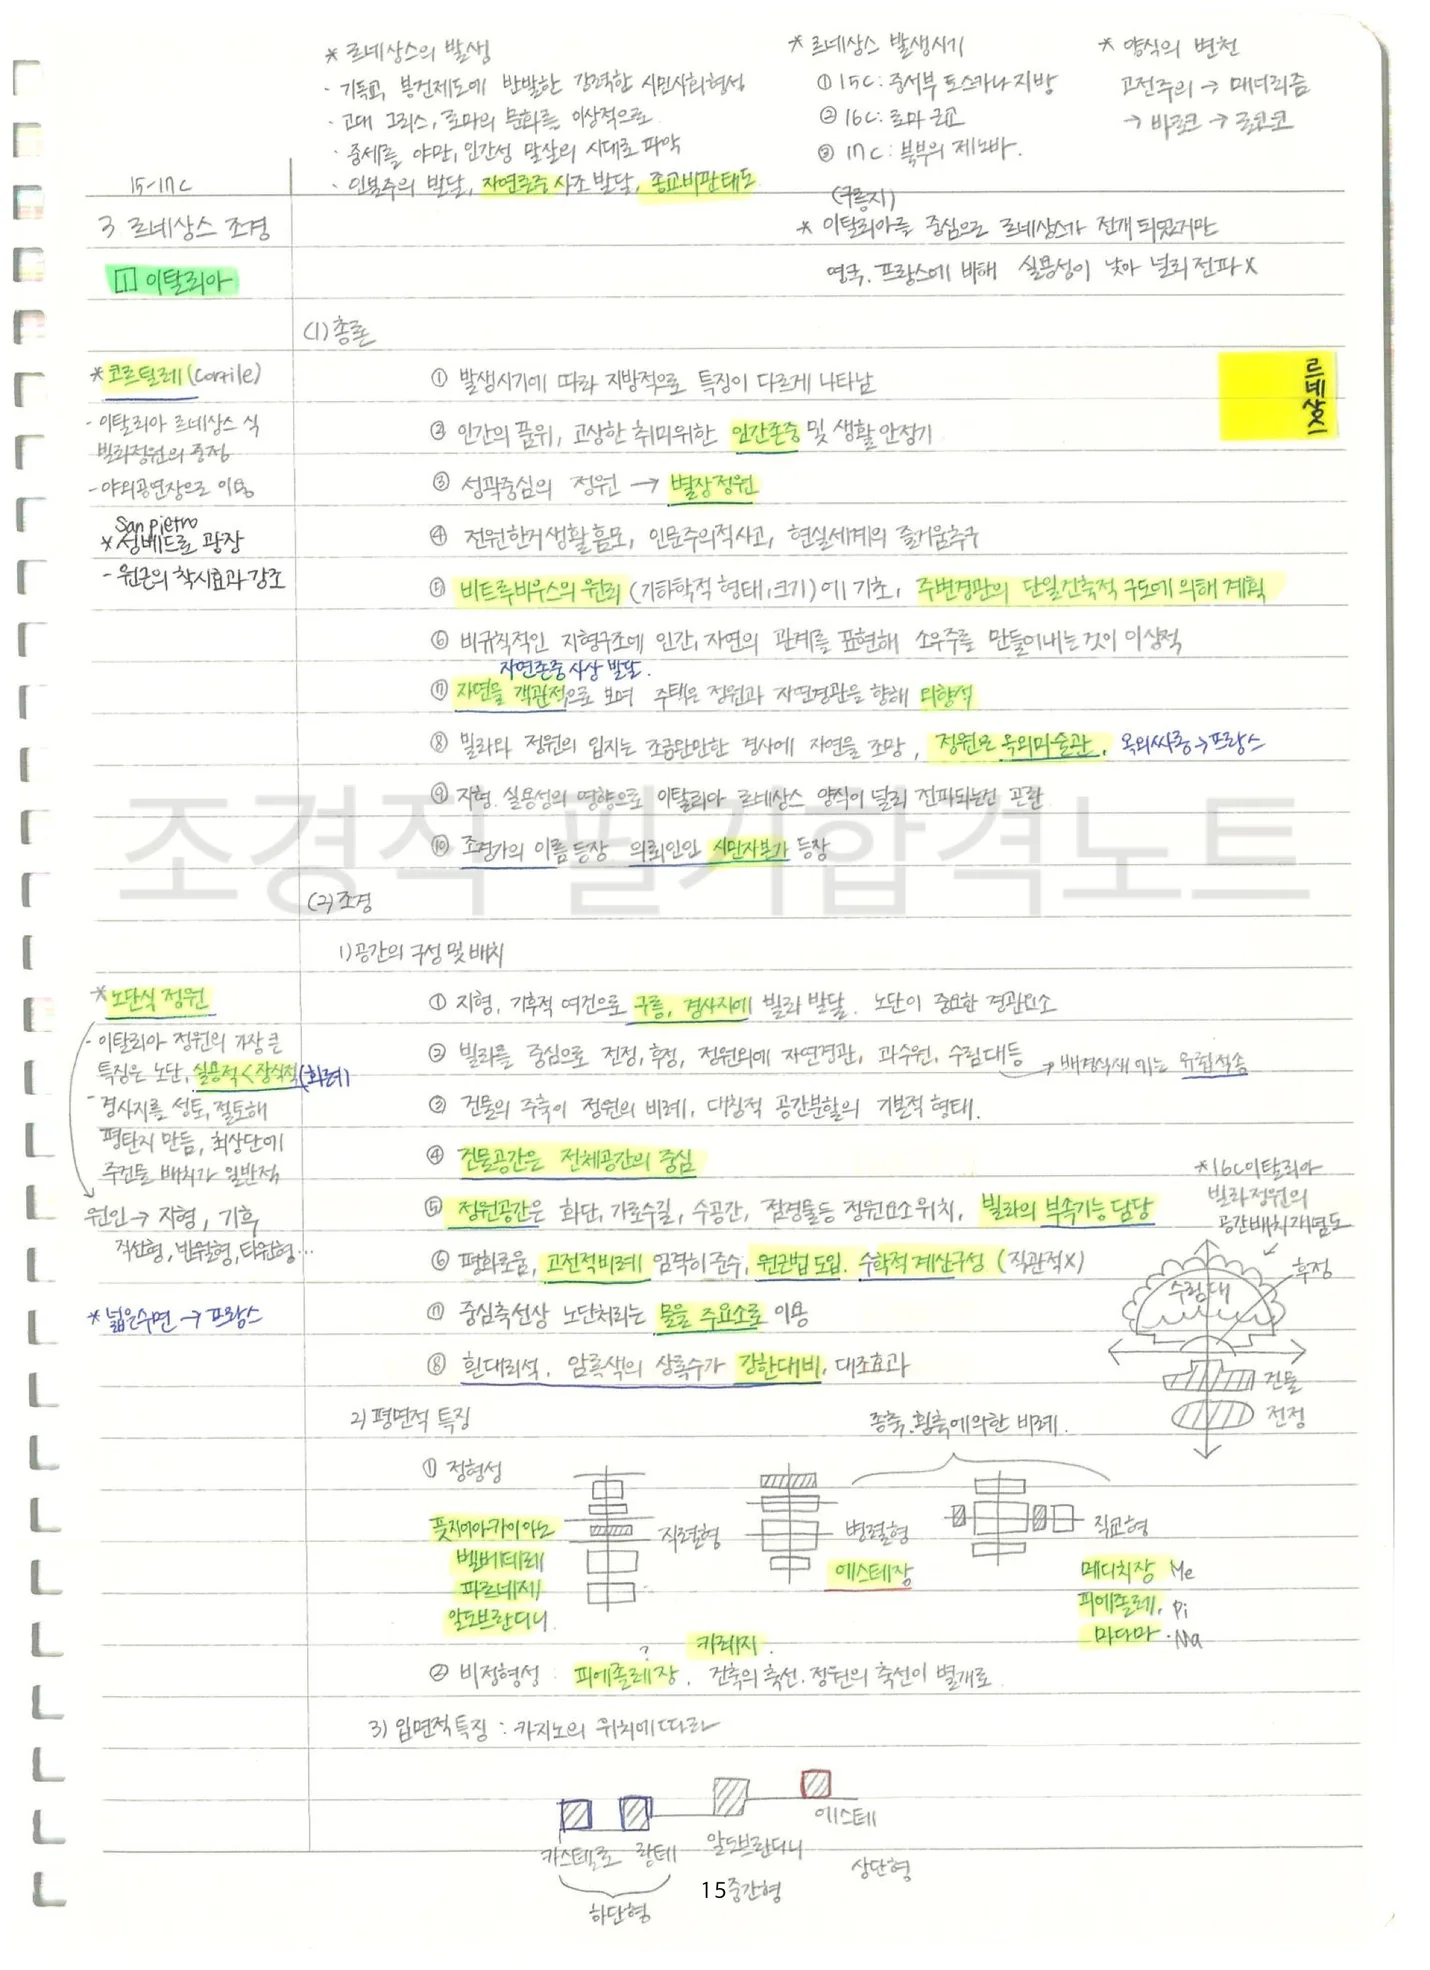 * 르네상스의 발생
· 기독교, 봉건제도에 반발한 강력한 시민사회형성
· 고대 그리스, 로마의 문화를 이상적으로
· 중세를 야만, 인간성 말살의 시대로 파악
· 인본주의 발달, 자연존중 사조 발달, 종교비판태도
* 르네상스 발생시기
① 15C : 중서부 토스카나 지방
② 16C : 로마 근교
③ 17C : 북부의 제노바.
* 양식의 변천
고전주의 → 매너리즘
→ 바로크 → 로코코
15-17C
3 르네상스 조경
(구릉지)
* 이탈리아를 중심으로 르네상스가 전개 되었지만
영국, 프랑스에 비해 실용성이 낮아 널리 전파 X
1 이탈리아
르네상스
(1) 총론
* 코르틸레 (cortile)
- 이탈리아 르네상스 식
빌라정원의 중정
- 야외공연장으로 이용
San pietro
* 성베드로 광장
- 원근의 착시효과 강조
① 발생시기에 따라 지방적으로 특징이 다르게 나타남
② 인간의 품위, 고상한 취미위한 인간존중 및 생활 안정기
③ 성곽중심의 정원 → 별장정원
④ 전원한거생활흠모, 인문주의적사고, 현실세계의 즐거움추구
⑤ 비트루비우스의 원리 (기하학적 형태, 크기)에 기초, 주변경관의 단일건축적 구도에 의해 계획
⑥ 비규칙적인 지형구조에 인간, 자연의 관계를 표현해 소우주를 만들어내는것이 이상적
자연존중사상 발달.
⑦ 자연을 객관적으로 보며 주택은 정원과 자연경관을 향해 외향적
⑧ 빌라와 정원의 입지는 조금완만한 경사에 자연을 조망, 정원은 옥외미술관, 옥외싸롱→프랑스
⑨ 지형. 실용성의 영향으로 이탈리아 르네상스 양식이 널리 전파되는건 곤란
⑩ 조경가의 이름 등장 의뢰인인 시민자본가 등장
조경직 필기합격노트
(2) 조경
1) 공간의 구성 및 배치
* 노단식 정원
- 이탈리아 정원의 가장 큰
특징은 노단, 실용적 < 장식적 (화려)
- 경사지를 성토, 절토해
평탄지 만듬, 최상단에
주건물 배치가 일반적
원인 → 지형, 기후
직선형, 반원형, 타원형…
* 넓은수면 → 프랑스
① 지형, 기후적 여건으로 구릉, 경사지에 빌라 발달. 노단이 중요한 경관요소
② 빌라를 중심으로 전정, 후정, 정원외에 자연경관, 과수원, 수림대등 → 배경식재에는 유럽적송
③ 건물의 주축이 정원의 비례, 대칭적 공간분할의 기본적 형태.
④ 건물공간은 전체공간의 중심
⑤ 정원공간은 화단, 가로수길, 수공간, 점경물등 정원요소 위치, 빌라의 부속기능 담당
⑥ 평화로움, 고전적비례 엄격히 준수, 원근법 도입. 수학적 계산구성 (직관적X)
⑦ 중심축선상 노단처리는 물을 주요소로 이용
⑧ 흰대리석, 암록색의 상록수가 강한대비, 대조효과
* 16C이탈리아
빌라정원의
공간배치개념도
수림대
후정
건물
전정
2) 평면적 특징
종축, 횡축에의한 비례.
① 정형성
풋지아카이아노
벨베데레
파르네제
알도브란디니
직렬형
병렬형
에스테장
직교형
메디치장 Me
피에졸레, Pi
마다마 · Ma
?
카레지.
② 비정형성 : 피에졸레장. 건축의 축선. 정원의 축선이 별개로
3) 입면적특징 : 카지노의 위치에따라
카스텔로 랑테 알도브란디니 에스테
하단형 중간형 상단형
15